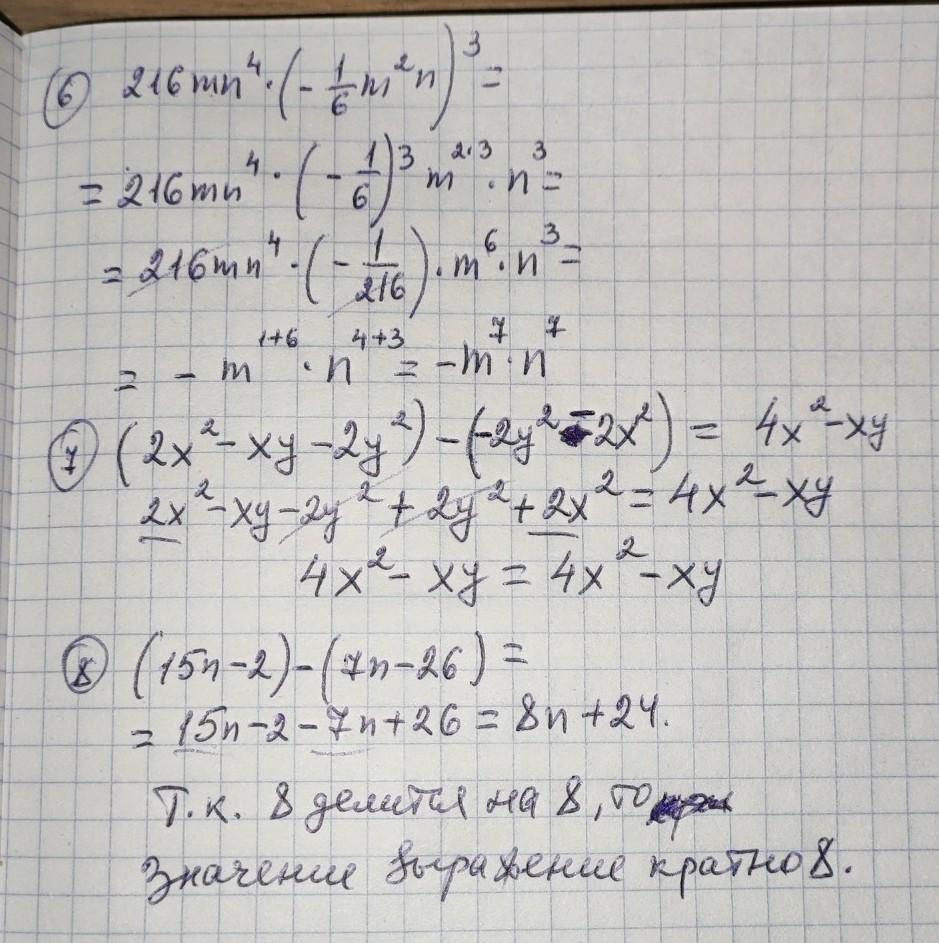 6 216mn⁴·(-1/6 m²n)³=
=216mn⁴·(-1/6)³ m²·³·n³=
=216mn⁴·(-1/216)·m⁶·n³=
= - m¹⁺⁶·n⁴⁺³=-m⁷·n⁷
7 (2x²-xy-2y²)-(-2y²-2x²) = 4x²-xy
2x²-xy-2y²+2y²+2x²=4x²-xy
4x²-xy=4x²-xy
8 (15n-2)-(7n-26)=
=15n-2-7n+26=8n+24.
Т.к. 8 делится на 8, то
значение выражение кратно 8.